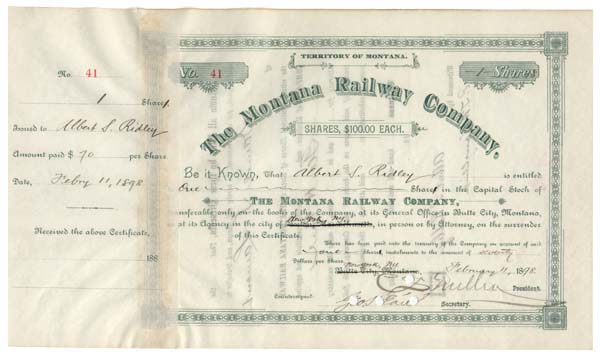 No. 41
1 Shares
Issued to Albert S. Ridley
Amount paid $ 70 per Share.
Date, Febry 11, 1898
Received the above Certificate,
188
TERRITORY OF MONTANA.
No. 41
1 Shares
The Montana Railway Company.
SHARES, $100.00 EACH.
Be it Known, That Albert S. Ridley is entitled
One Share in the Capital Stock of
THE MONTANA RAILWAY COMPANY,
transferable only on the books of the Company, at its General Office in Butte City, Montana,
at its Agency in the city of New York, NY in person or by Attorney, on the surrender
of this Certificate.
There has been paid into the treasury of the Company on account of said
one Share instalments to the amount of seventy
Dollars per Share.
New York, NY
Butte City, Montana, February 11, 1898.
President.
Countersigned:
Secretary.